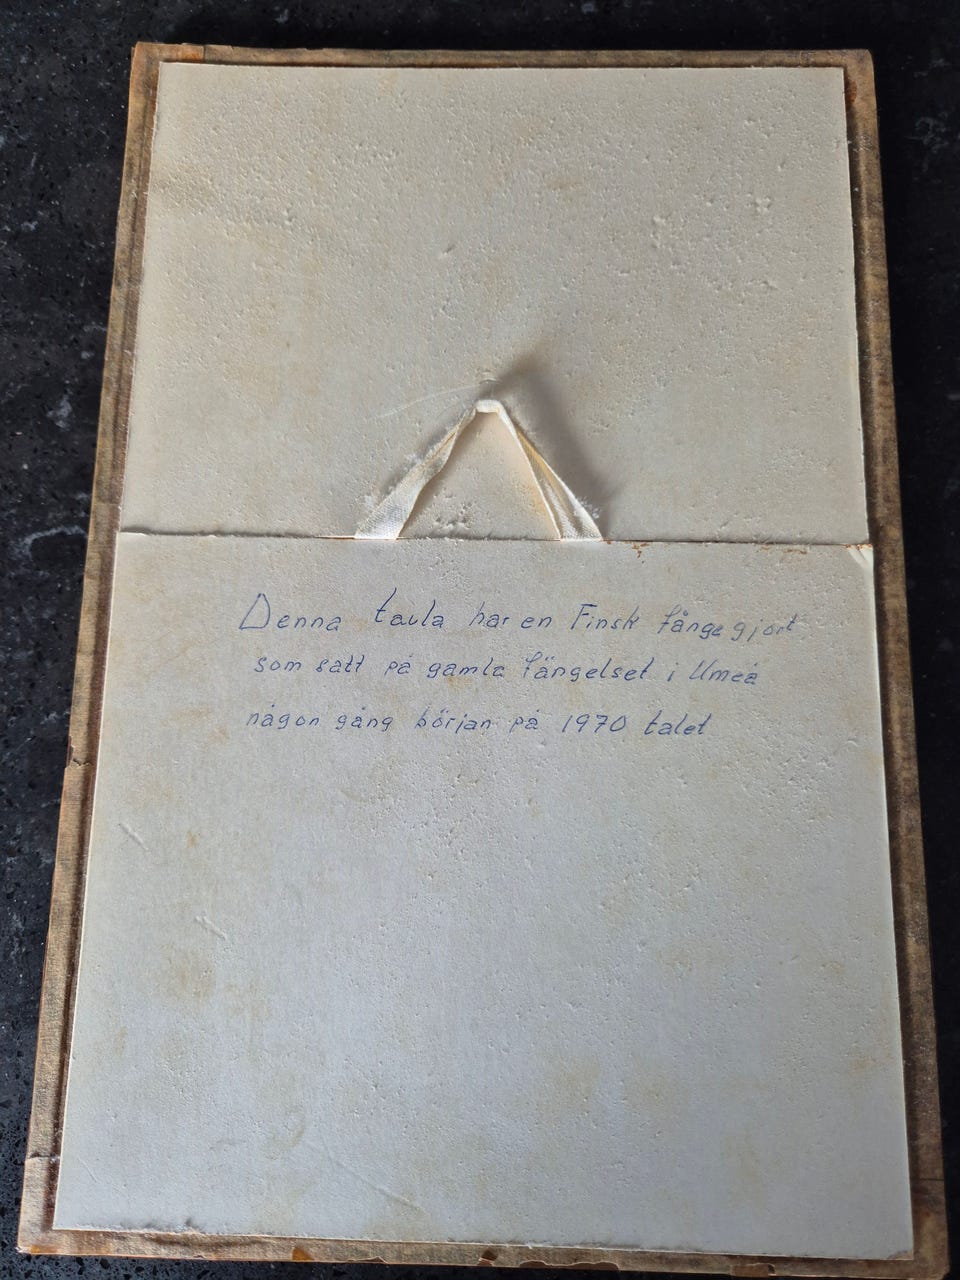 Denna tavla har en Finsk fånge gjort
som satt på gamla fängelset i Umeå
någon gång början på 1970 talet